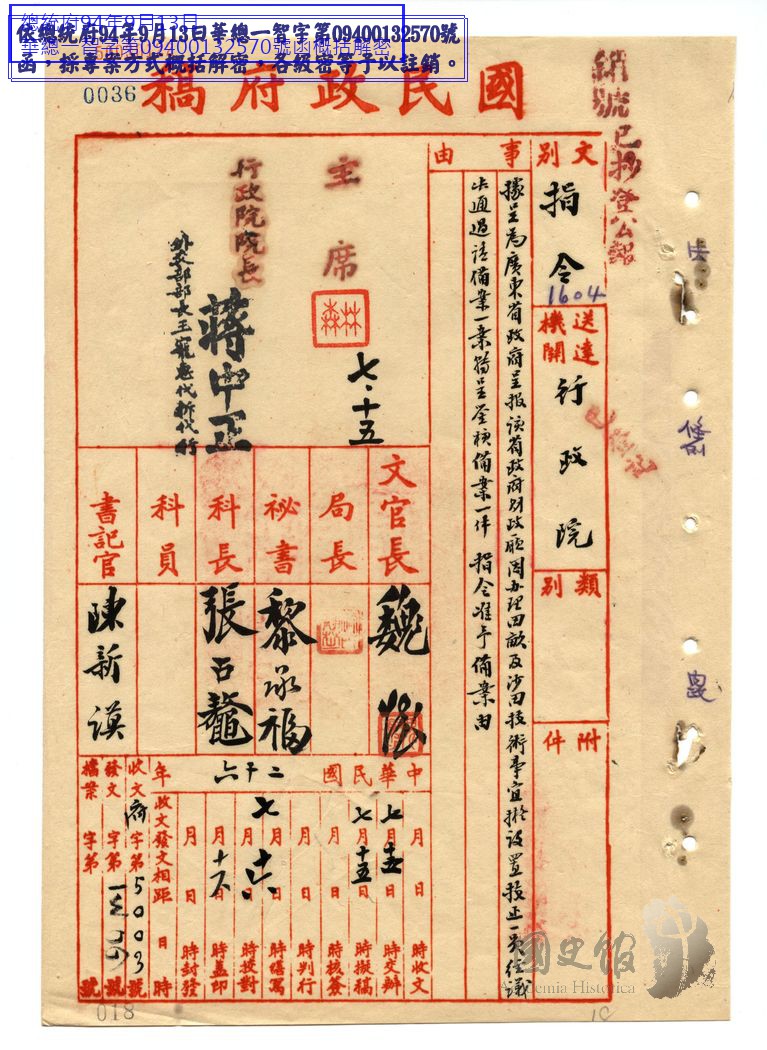 總統府94年9月13日
華總一智字第09400132570號函概括解密
依總統府94年9月13日華總一智字第09400132570號
函，採專案方式概括解密，各級密等予以註銷。
0036
國民政府稿
號已抄登公報
文別
指令
1604
送達機關
行政院
類別
附件
事由
據呈為廣東省政府呈報該省政府財政廳因办理田畝及沙田技術事宜擬設置技正一員經議
決通過請備案一案轉呈鑒核備案一件 指令准予備案由
主席
林森
七.十五
行政院院長
蔣中正
外交部部長王寵惠代拆代行
文官長
魏懷
局長
祕書
黎承福
科長
張百鼇
科員
書記官
陳新謨
中華民國二十六年
月 日 時收文
七月 日 時交辦
七月十五日 時擬稿
月 日 時核簽
月 日 時判行
月 日 時繕寫
七月十六日 時校對
月 日 時蓋印
月 日 時封發
收文發文相距 日 時
收文府字第5003號
發文 字第 號
檔案 字第 號
018
國史館
Academia Historica